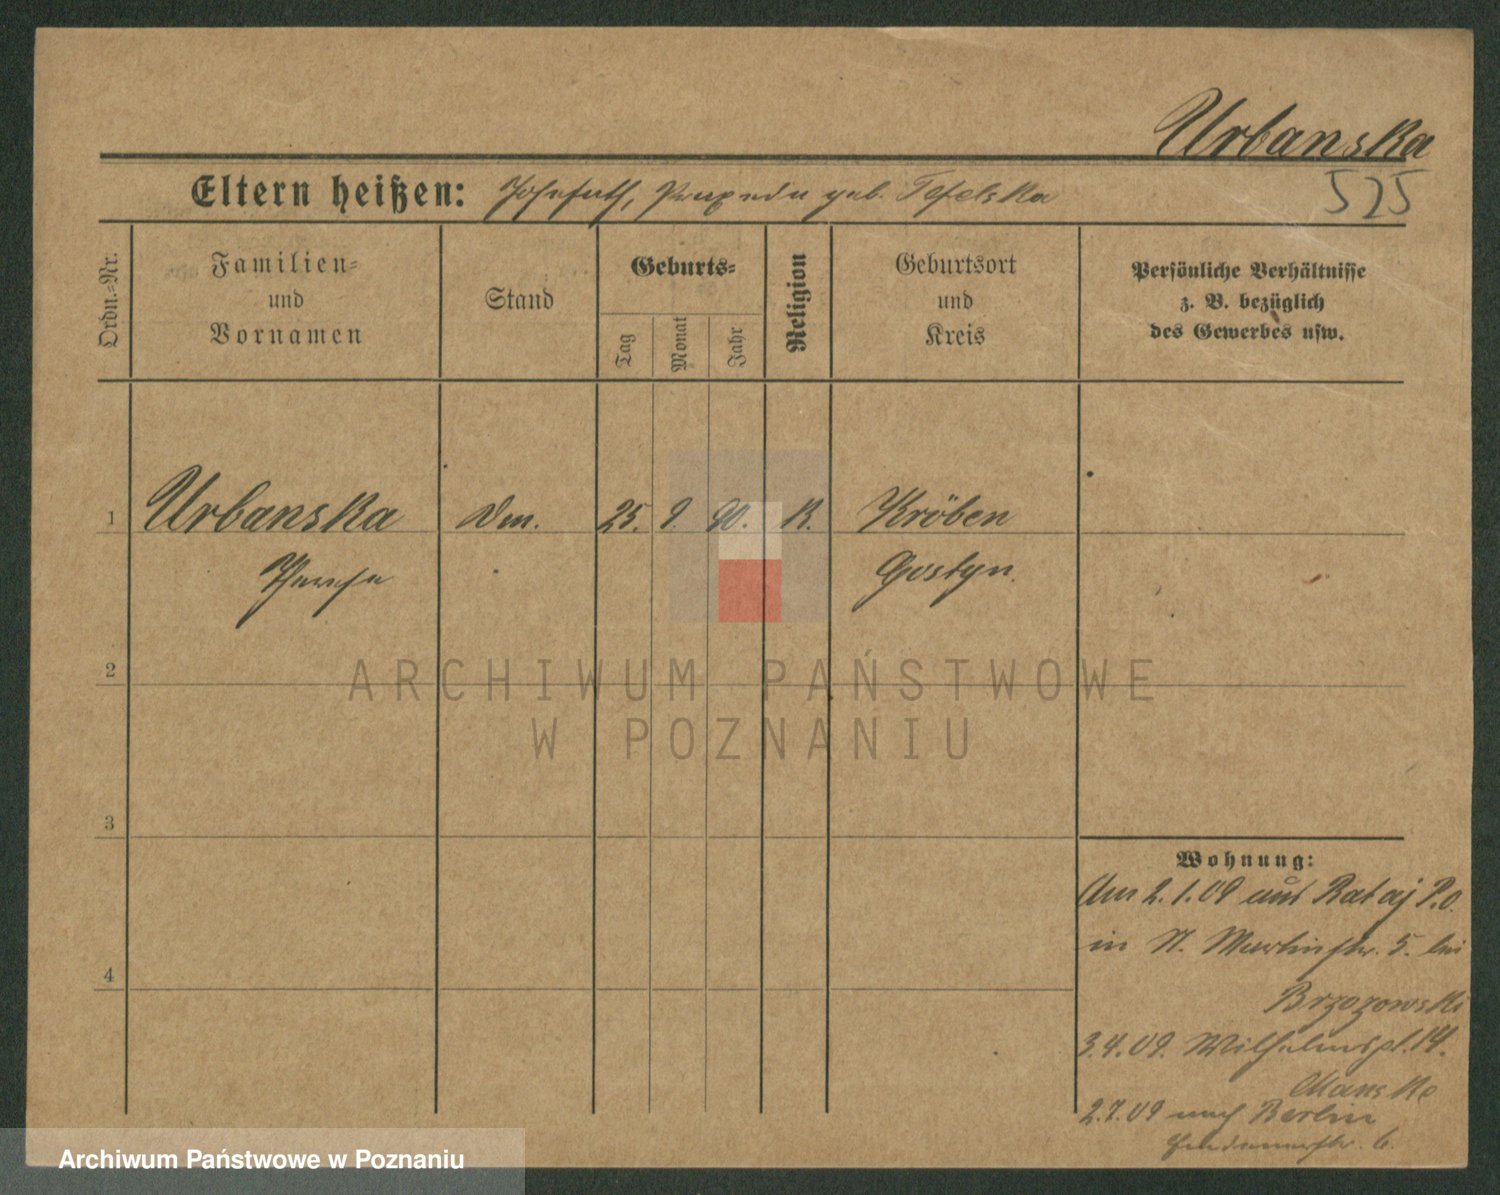 Urbanska
525
Eltern heißen: geb. Tefelska
Ordn.-Nr.
Familien-
und
Vornamen
Stand
Geburts-
Tag
Monat
Jahr
Religion
Geburtsort
und
Kreis
Persönliche Verhältnisse
z. B. bezüglich
des Gewerbes usw.
1
Urbanska
25. 9. 90. K.
Kröben
Gostyn.
2
ARCHIWUM PAŃSTWOWE
W POZNANIU
3
4
Wohnung:
Am 2.1.09 aus Rataj P.O.
in St. Martinstr. 5. bei
Brzozowski
3.4.09. Wilhelmspl. 14.
Manske
2.7.09 nach Berlin
Archiwum Państwowe w Poznaniu